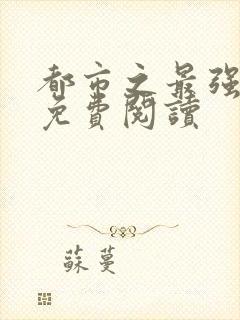 都市之最强
免費閱讀
蘇蔓